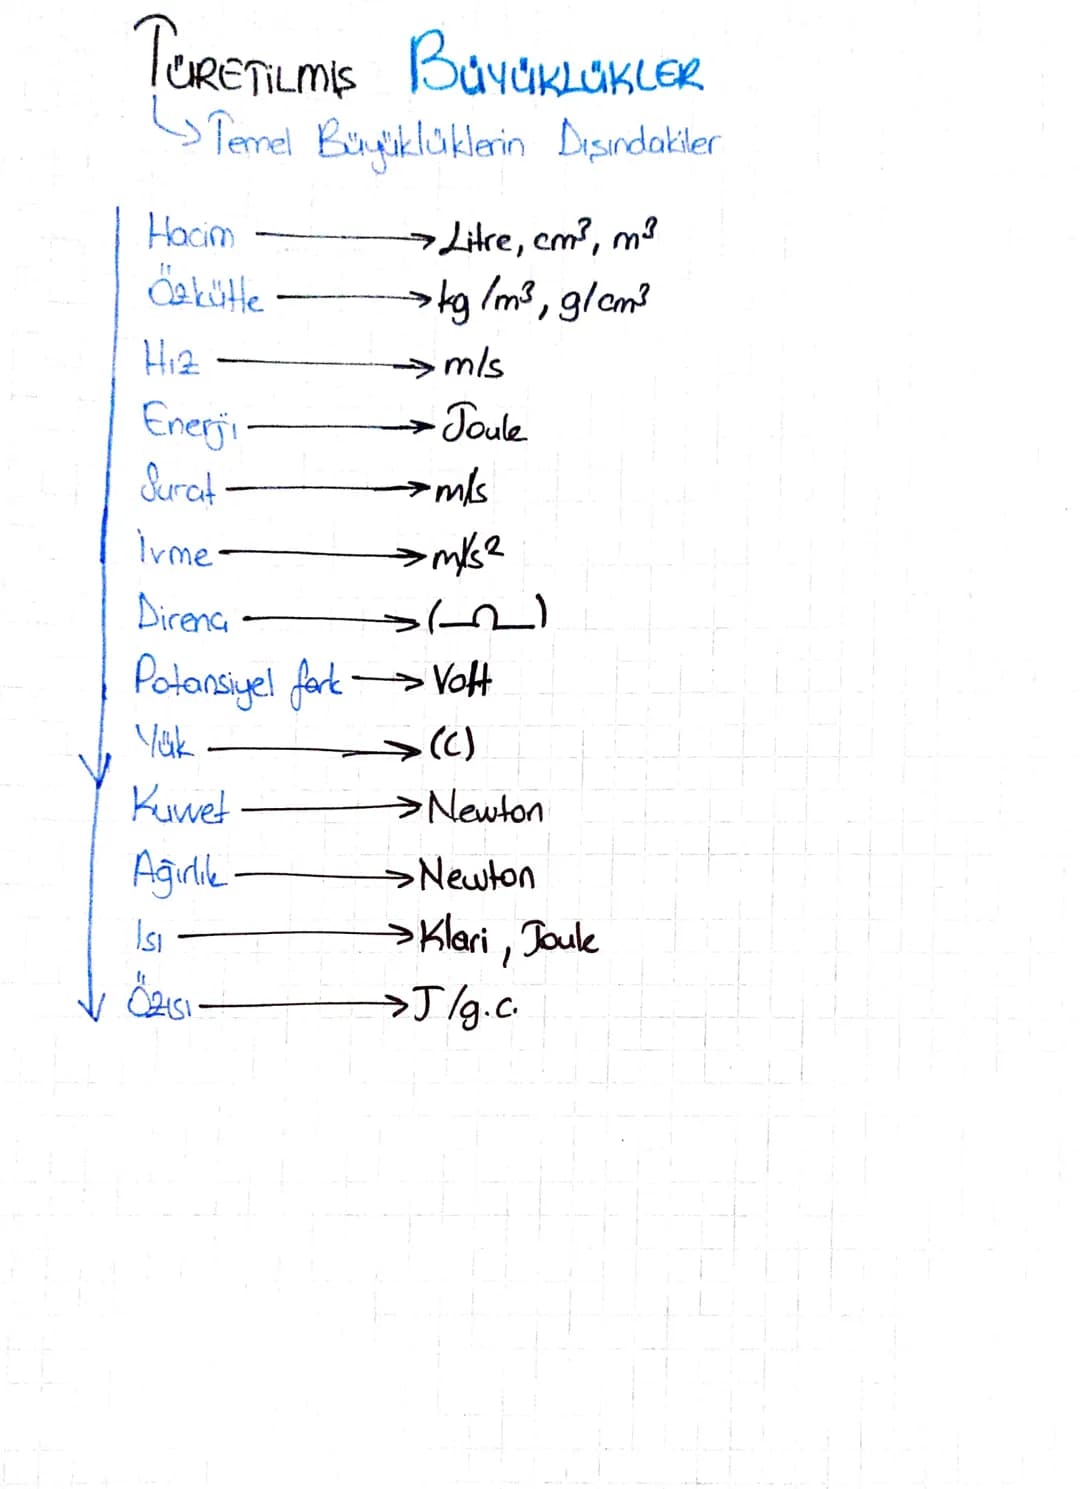 TÜRETİLMİŞ BÜYÜKLÜKLER
↳ Temel Büyüklüklerin Dışındakiler
Hacim → Litre, cm³, m³
Özkütle → kg/m³, g/cm³
Hız → m/s
Enerji → Joule
Surat → m/s
İvme → m/s²
Direnç → (Ω)
Potansiyel fark → Volt
Yük → (C)
Kuvvet → Newton
Ağırlık → Newton
Isı → Klari, Joule
Özısı → J/g.c.